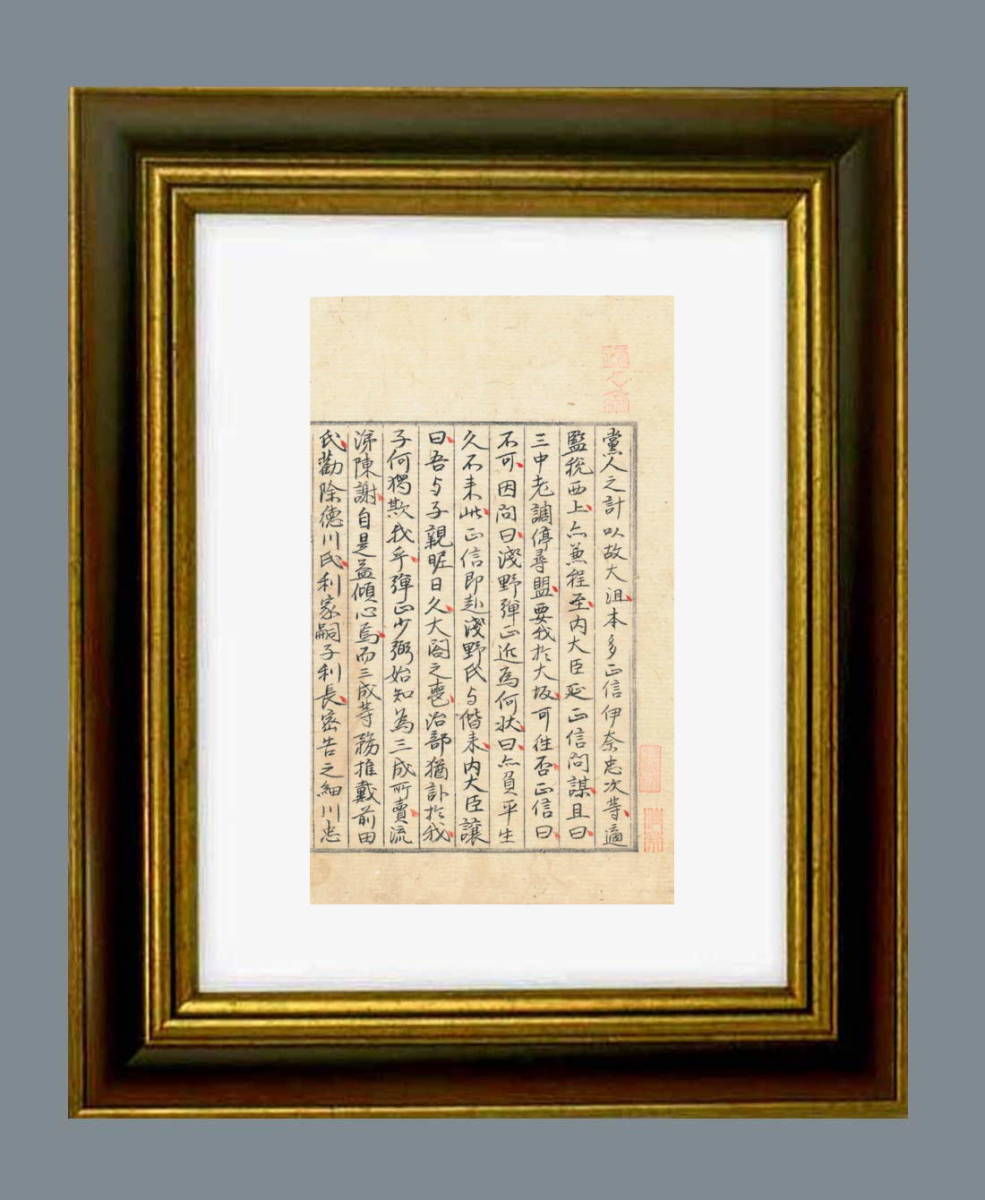 黨人之計以故大沮本多正信伊奈忠次等適
監稅西上亦兼程至內大臣延正信問謀且曰
三中老調停尋盟要我於大坂可往否正信曰
不可因問曰淺野彈正近為何狀曰亦負平生
久不来此正信即赴淺野氏与偕来內大臣讓
曰吾与子親昵日久大閤之薨治部猶訃於我
子何獨欺我乎彈正少弼始知為三成所賣流
涕陳謝自是益傾心焉而三成等務推戴前田
氏勸除德川氏利家嗣子利長密告之細川忠